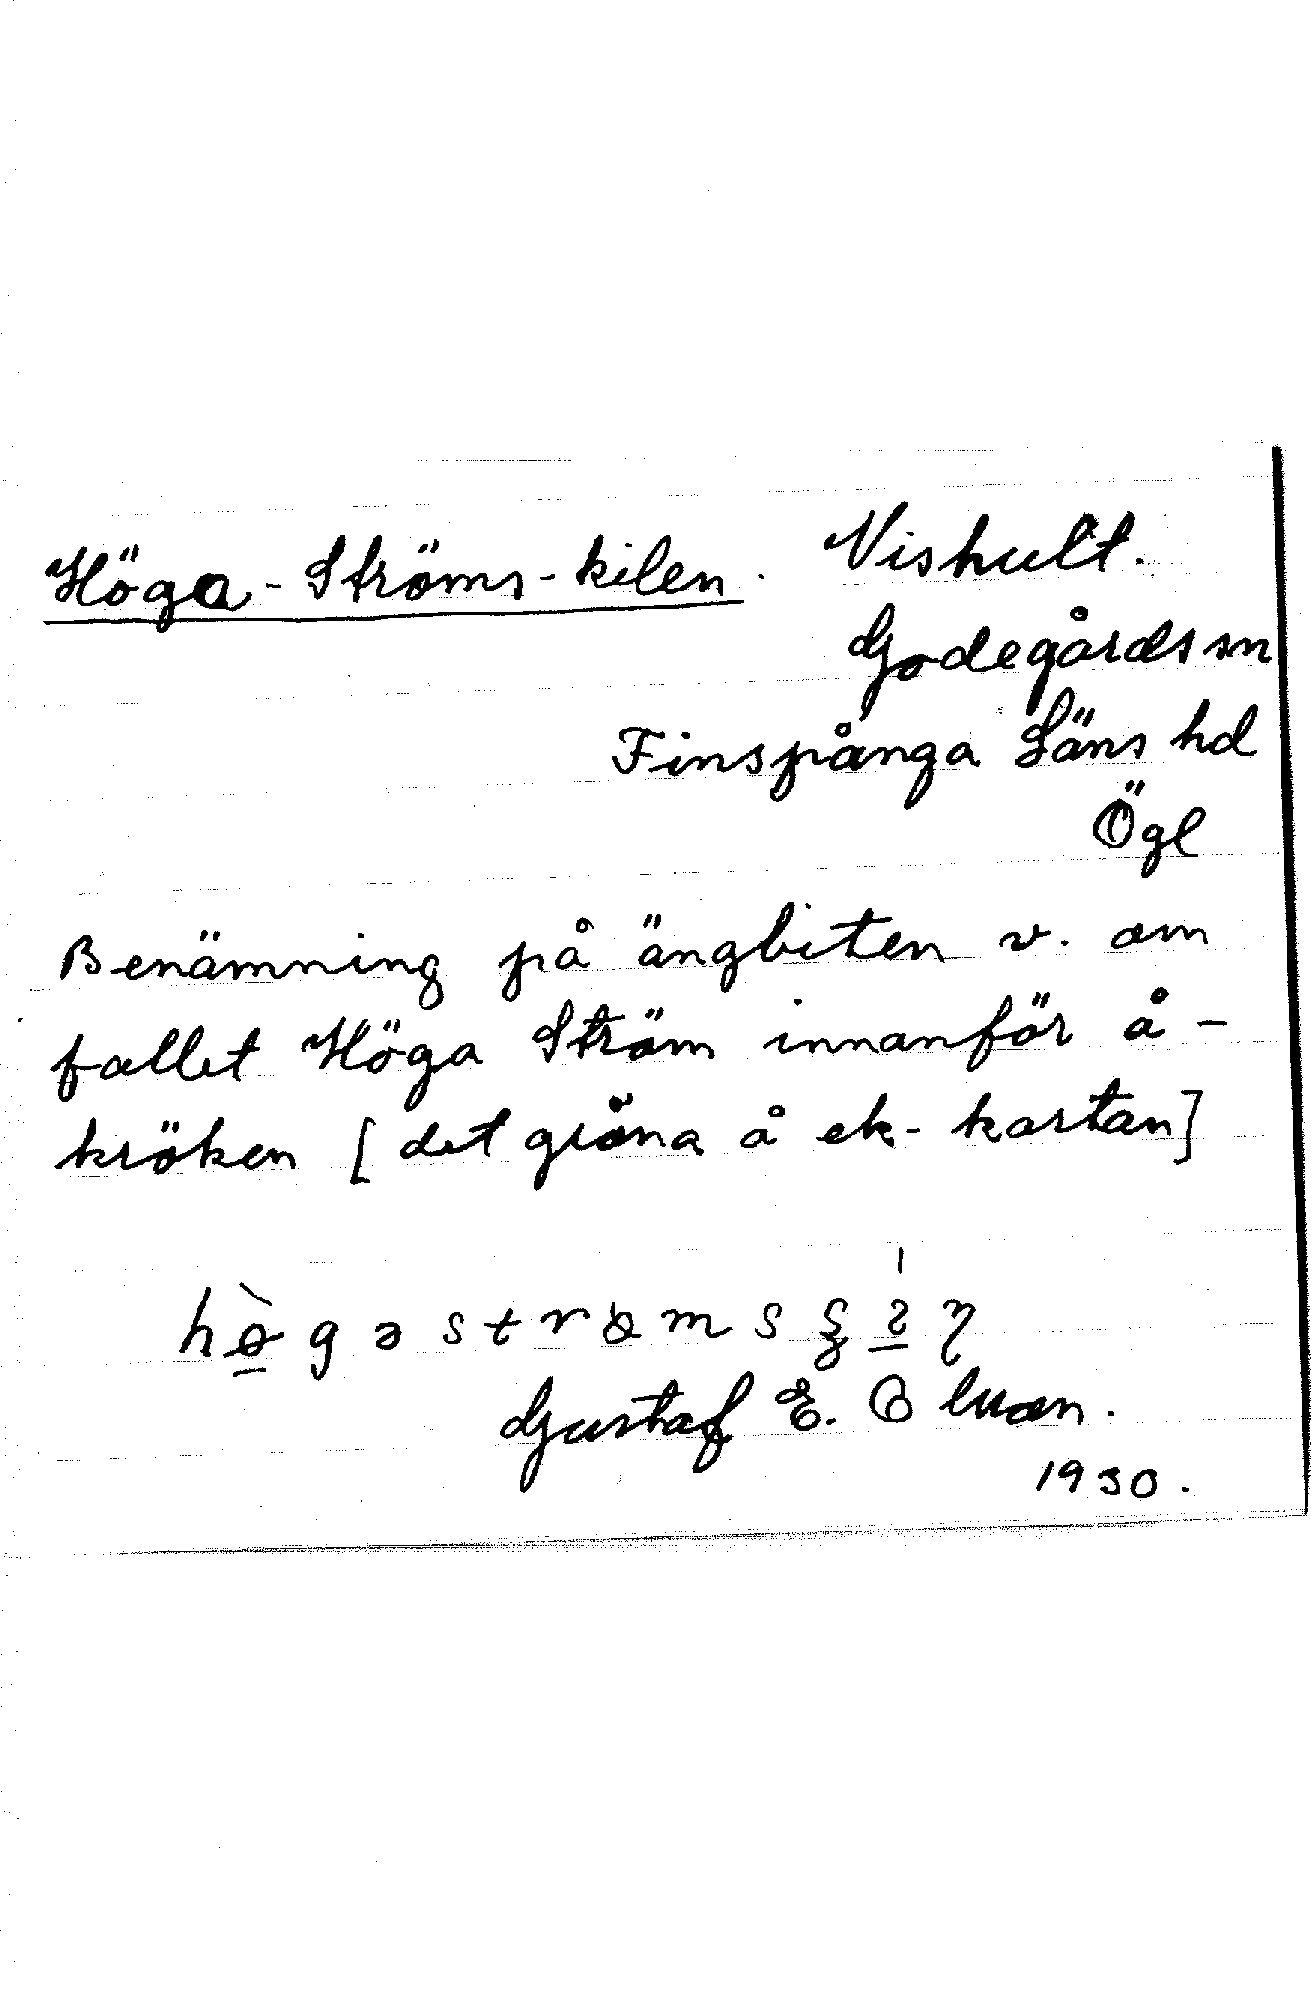 Höga-Ströms-kilen. Vishult.
Godegårds sn
Finspånga Läns hd
Ögl
Benämning på ängbiten v. om
fallet Höga Ström innanför å-
kröken [det gröna å ek-kartan]
Gustaf E.
1930.